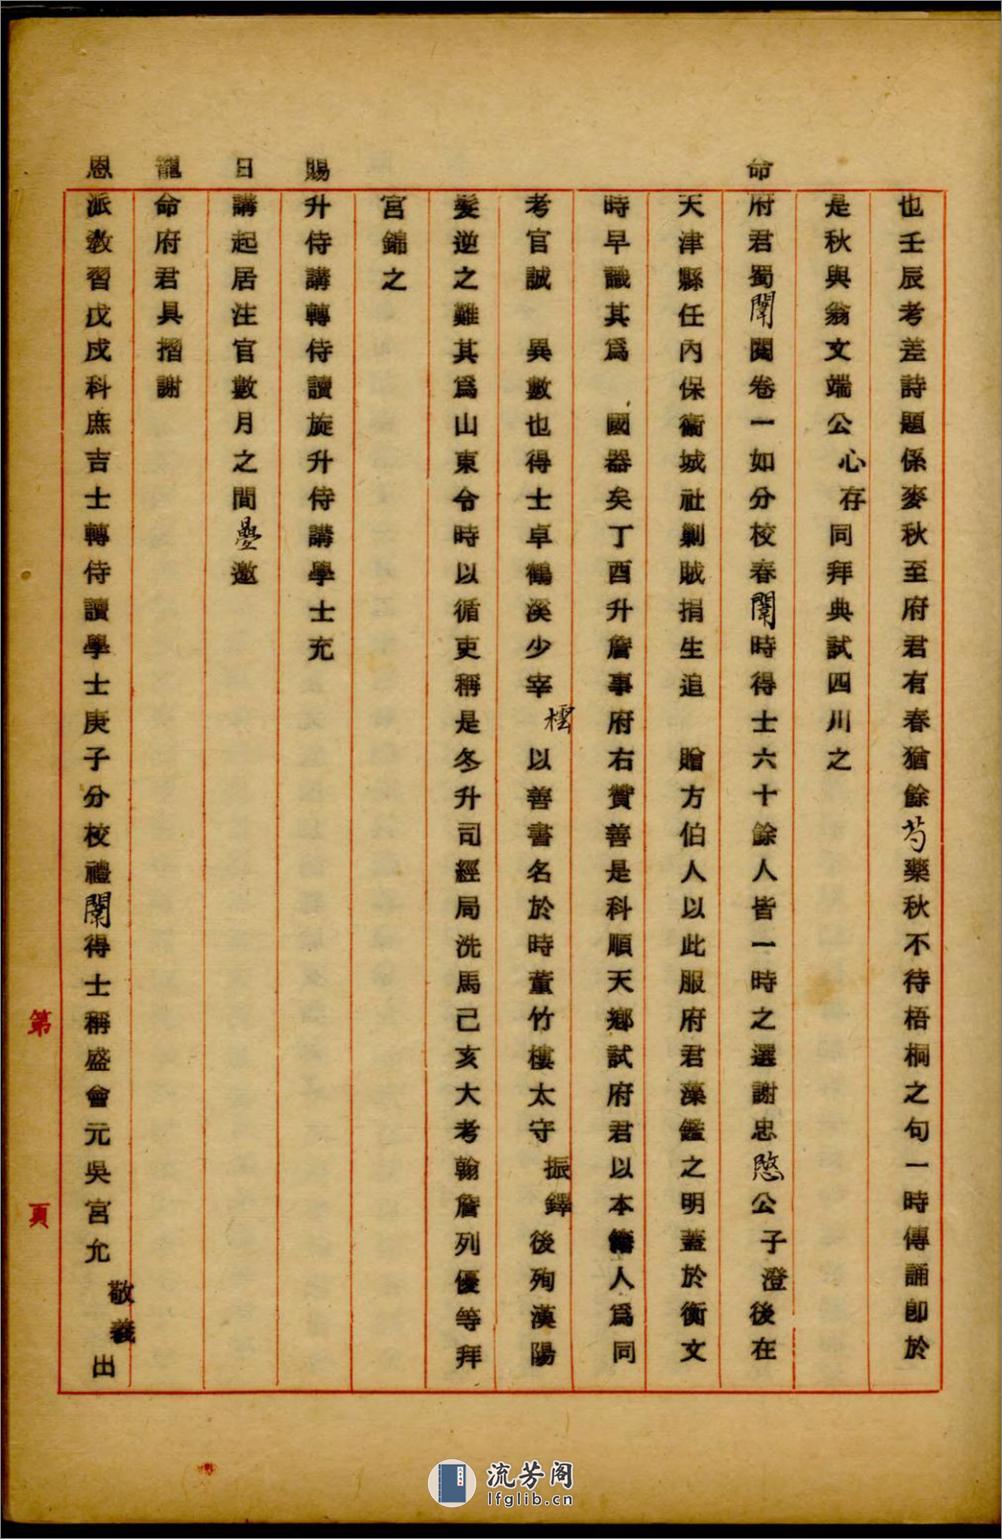 也壬辰考差詩題係麥秋至府君有春猶餘芍藥秋不待梧桐之句一時傳誦卽於
是秋與翁文端公心存同拜典試四川之
命府君蜀闈閱卷一如分校春闈時得士六十餘人皆一時之選謝忠愍公子澄後在
天津縣任內保衞城社剿賊捐生追 贈方伯人以此服府君藻鑑之明蓋於衡文
時早識其爲 國器矣丁酉升詹事府右贊善是科順天鄉試府君以本衙人爲同
考官誠 異數也得士卓鶴溪少宰橒以善書名於時董竹樓太守振鐸後殉漢陽
髮逆之難其爲山東令時以循吏稱是冬升司經局洗馬己亥大考翰詹列優等拜
宮錦之
賜升侍講轉侍讀旋升侍講學士充
日講起居注官數月之間疊邀
寵命府君具摺謝
恩派敎習戊戌科庶吉士轉侍讀學士庚子分校禮闈得士稱盛會元吳宮允敬義出
第 頁
流芳阁
lfglib.cn